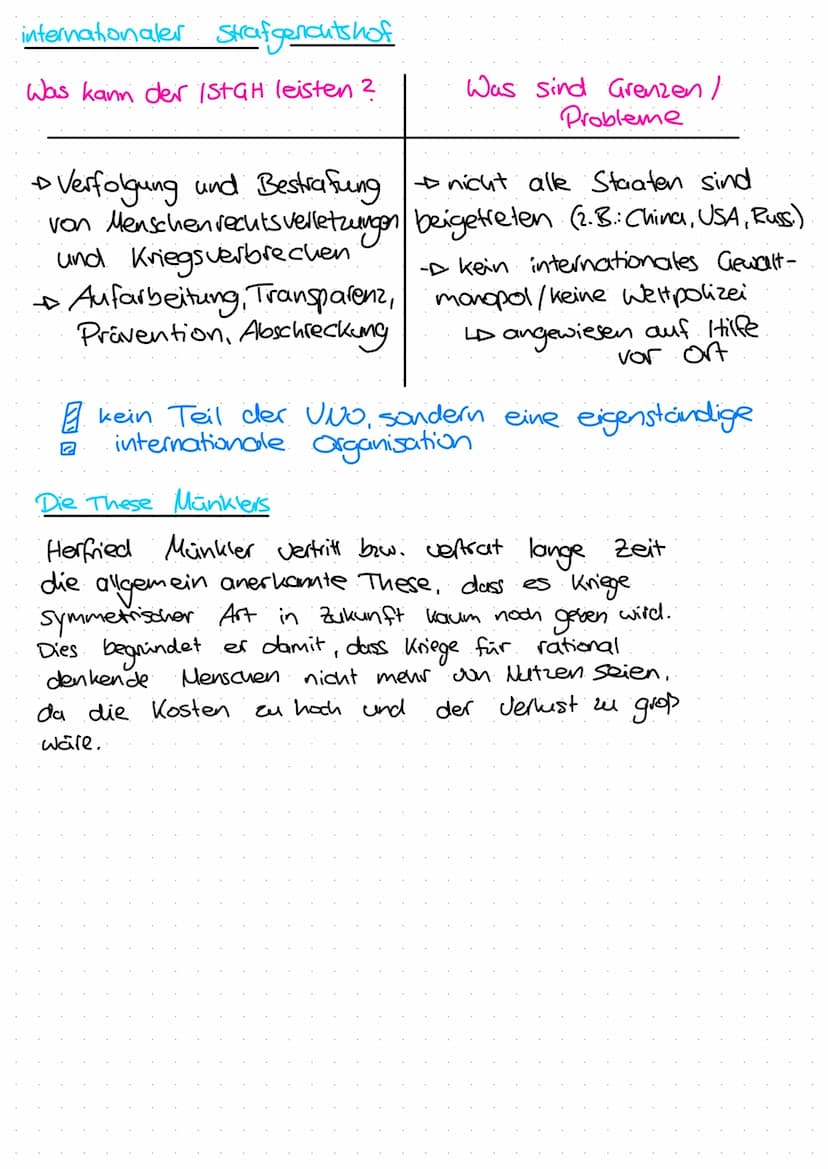 internationaler Strafgerichtshof
Was kann der IStGH leisten?
→ Verfolgung und Bestrafung
von Menschenrechtsverletzungen
und Kriegsverbrechen
→ Aufarbeitung, Transparenz,
Prävention, Abschreckung
Was sind Grenzen /
Probleme
→ nicht alle Staaten sind
beigetreten (z.B.: China, USA, Russ.)
→ kein internationales Gewalt-
monopol / keine Weltpolizei
↳ angewiesen auf Hilfe
vor Ort
! kein Teil der UNO, sondern eine eigenständige
internationale Organisation
Die These Münklers
Herfried Münkler vertritt bzw. vertrat lange Zeit
die allgemein anerkannte These, dass es Kriege
symmetrischer Art in Zukunft kaum noch geben wird.
Dies begründet er damit, dass Kriege für rational
denkende Menschen nicht mehr von Nutzen seien,
da die Kosten zu hoch und der Verlust zu groß
wäre.